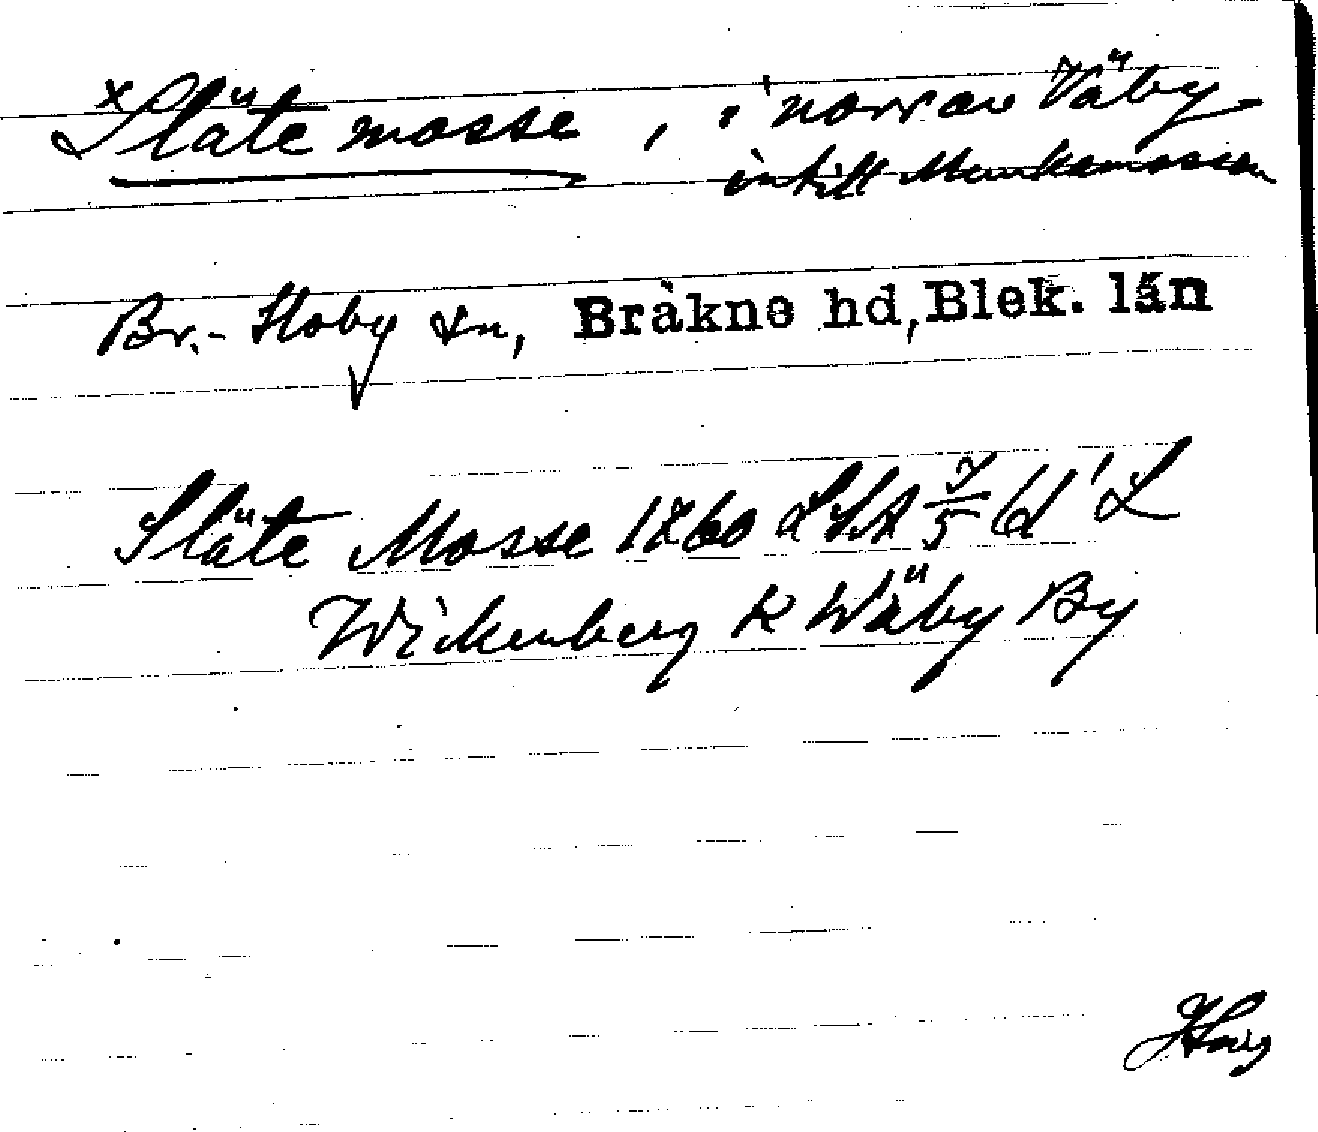 x Släte mosse, i norr av Väby
intill Munkamossen
Br.-Hoby sn, Bräkne hd, Blek. län
Släte Mosse 1860 LSA
Wickenberg K Wäby By